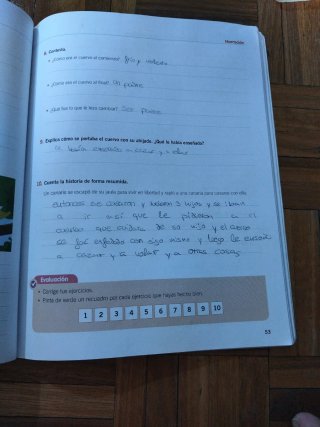 Narración
8. Contesta.
• ¿Cómo era el cuervo al comienzo? frio y
• ¿Cómo era el cuervo al final? Un padre
• ¿Qué fue lo que le hizo cambiar? Ser padre
9. Explica cómo se portaba el cuervo con su ahijado. ¿Qué le había enseñado?
le había enseñado a cazar y a volar
10. Cuenta la historia de forma resumida.
Un canario se escapó de su jaula para vivir en libertad y raptó a una canaria para casarse con ella.
entonces se casaron y tubieron 3 hijos y se iban
a ir así que le pidieron a el
cuervo que cuidara de su hijo y el cuervo
se fue enfadado con sigo mismo y luego le enseñó
a cazar y a volar y a otras cosas.
Evaluación
• Corrige tus ejercicios.
• Pinta de verde un recuadro por cada ejercicio que hayas hecho bien.
1 2 3 4 5 6 7 8 9 10
53